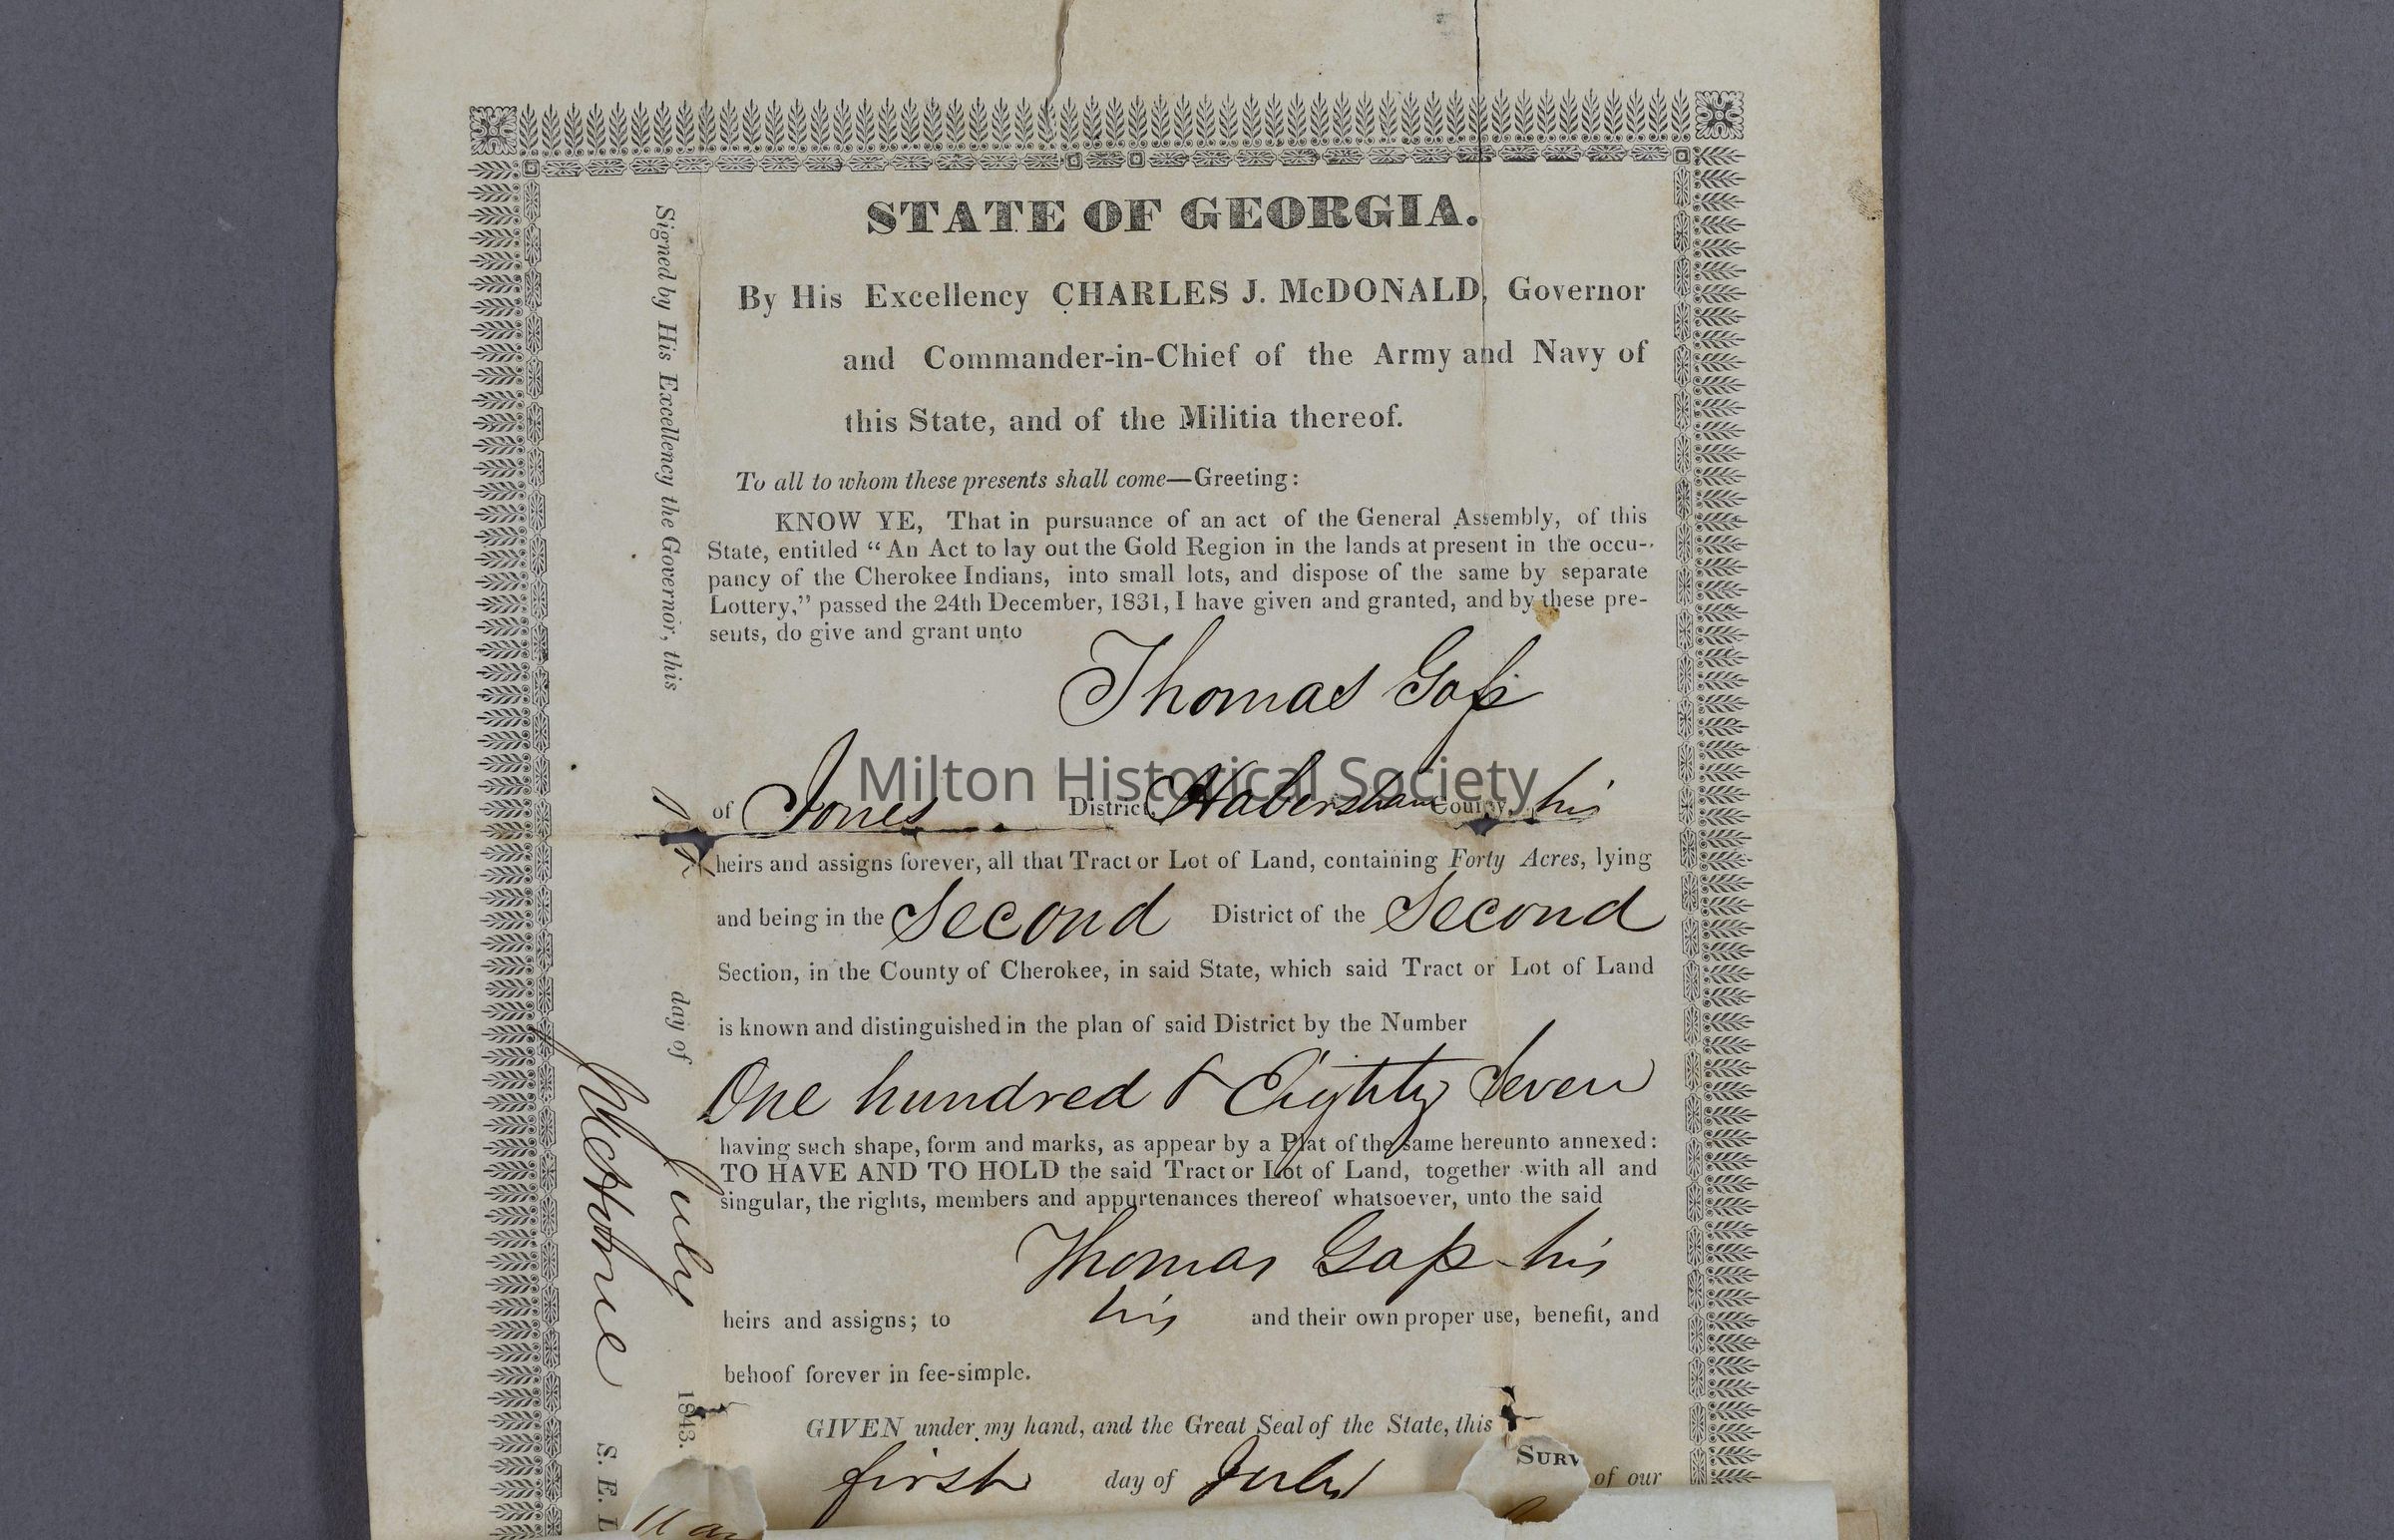 STATE OF GEORGIA.
By His Excellency CHARLES J. McDONALD, Governor
and Commander-in-Chief of the Army and Navy of
this State, and of the Militia thereof.
To all to whom these presents shall come—Greeting:
KNOW YE, That in pursuance of an act of the General Assembly, of this
State, entitled “An Act to lay out the Gold Region in the lands at present in the occu-
pancy of the Cherokee Indians, into small lots, and dispose of the same by separate
Lottery,” passed the 24th December, 1831, I have given and granted, and by these pre-
sents, do give and grant unto
Thomas Goſs
Milton Historical Society
of Jones District, Habersham County, his
heirs and assigns forever, all that Tract or Lot of Land, containing Forty Acres, lying
and being in the Second District of the Second
Section, in the County of Cherokee, in said State, which said Tract or Lot of Land
is known and distinguished in the plan of said District by the Number
One hundred & Eighty Seven
having such shape, form and marks, as appear by a Plat of the same hereunto annexed:
TO HAVE AND TO HOLD the said Tract or Lot of Land, together with all and
singular, the rights, members and appurtenances thereof whatsoever, unto the said
Thomas Goſs his
heirs and assigns; to his and their own proper use, benefit, and
behoof forever in fee-simple.
GIVEN under my hand, and the Great Seal of the State, this
first day of July of our
SURV
Signed by His Excellency the Governor, this
day of July 1843.
S. E. D